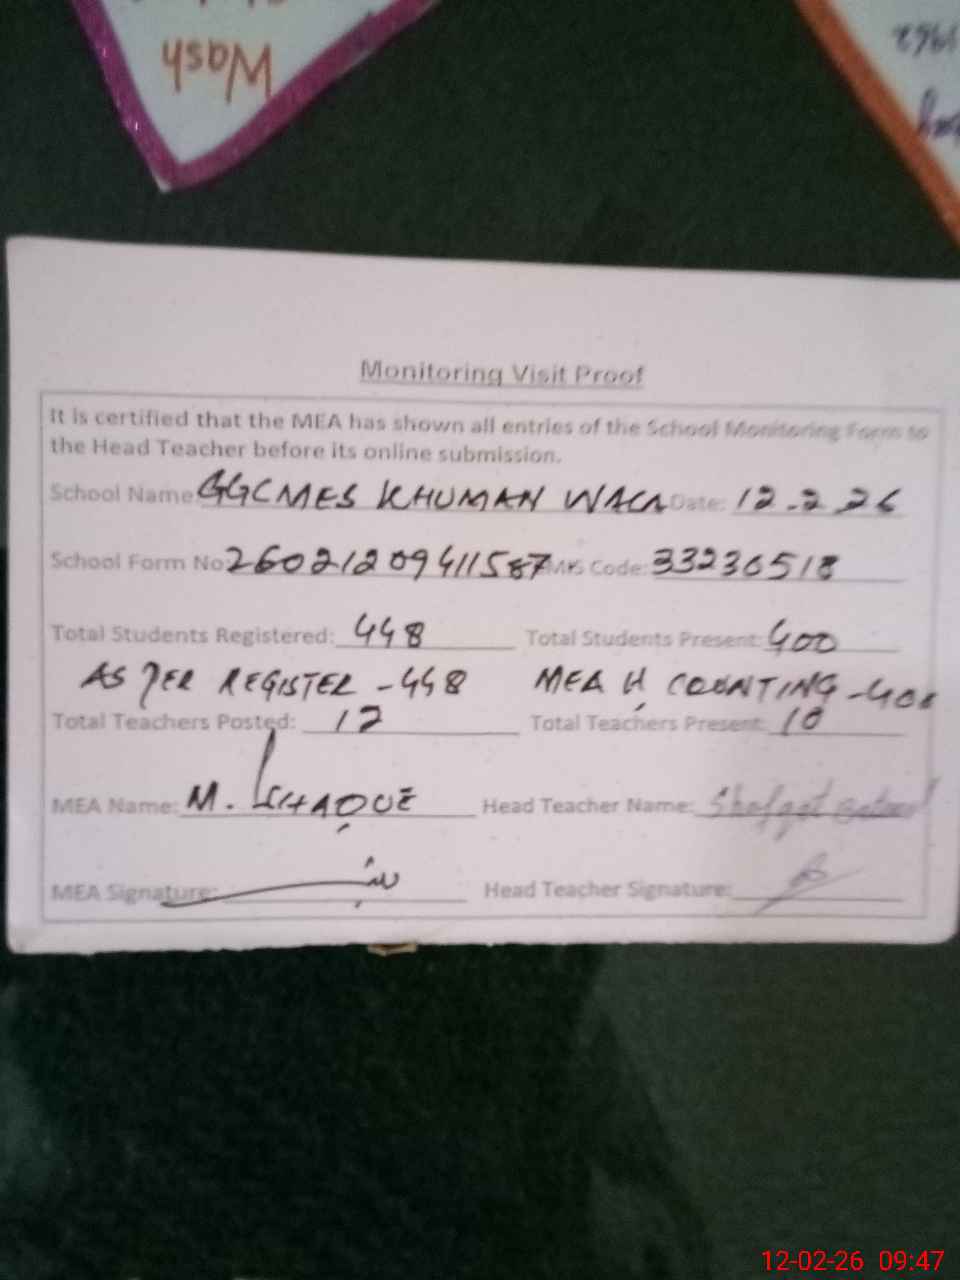 Wash
1962
Monitoring Visit Proof
It is certified that the MEA has shown all entries of the School Monitoring Form to
the Head Teacher before its online submission.
School Name: GGCMES KHUMAN WALA Date: 12-2-26
School Form No: 26021209411587 EMIS Code: 33230518
Total Students Registered: 448 Total Students Present: 400
AS PER REGISTER - 448 MEA H COUNTING - 400
Total Teachers Posted: 12 Total Teachers Present: 10
MEA Name: M. ISHAQUE Head Teacher Name: Shafqat
MEA Signature: Head Teacher Signature:
12-02-26 09:47